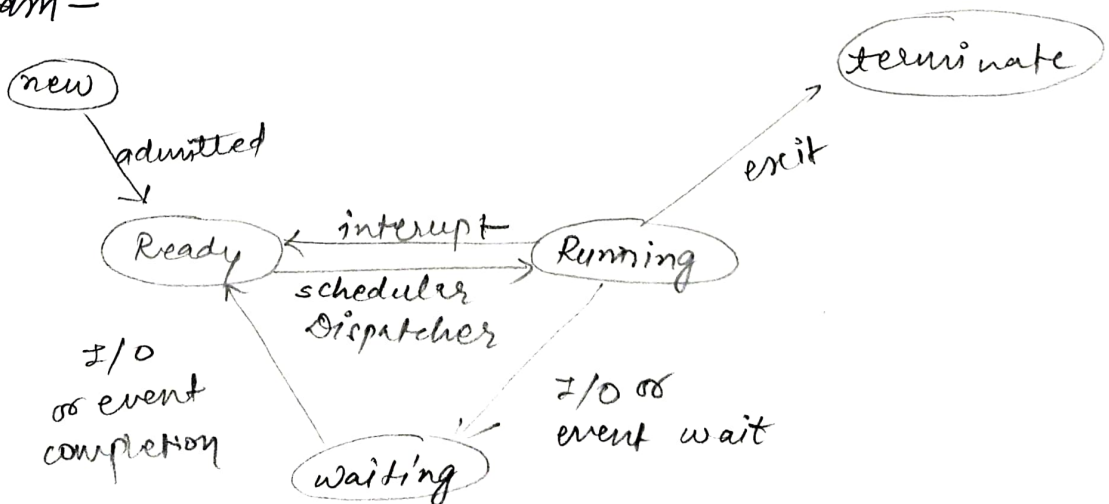 new
terminate
admitted
exit
interupt
Ready
Running
schedular
Dispatcher
I/O
or event
completion
I/O or
event wait
waiting